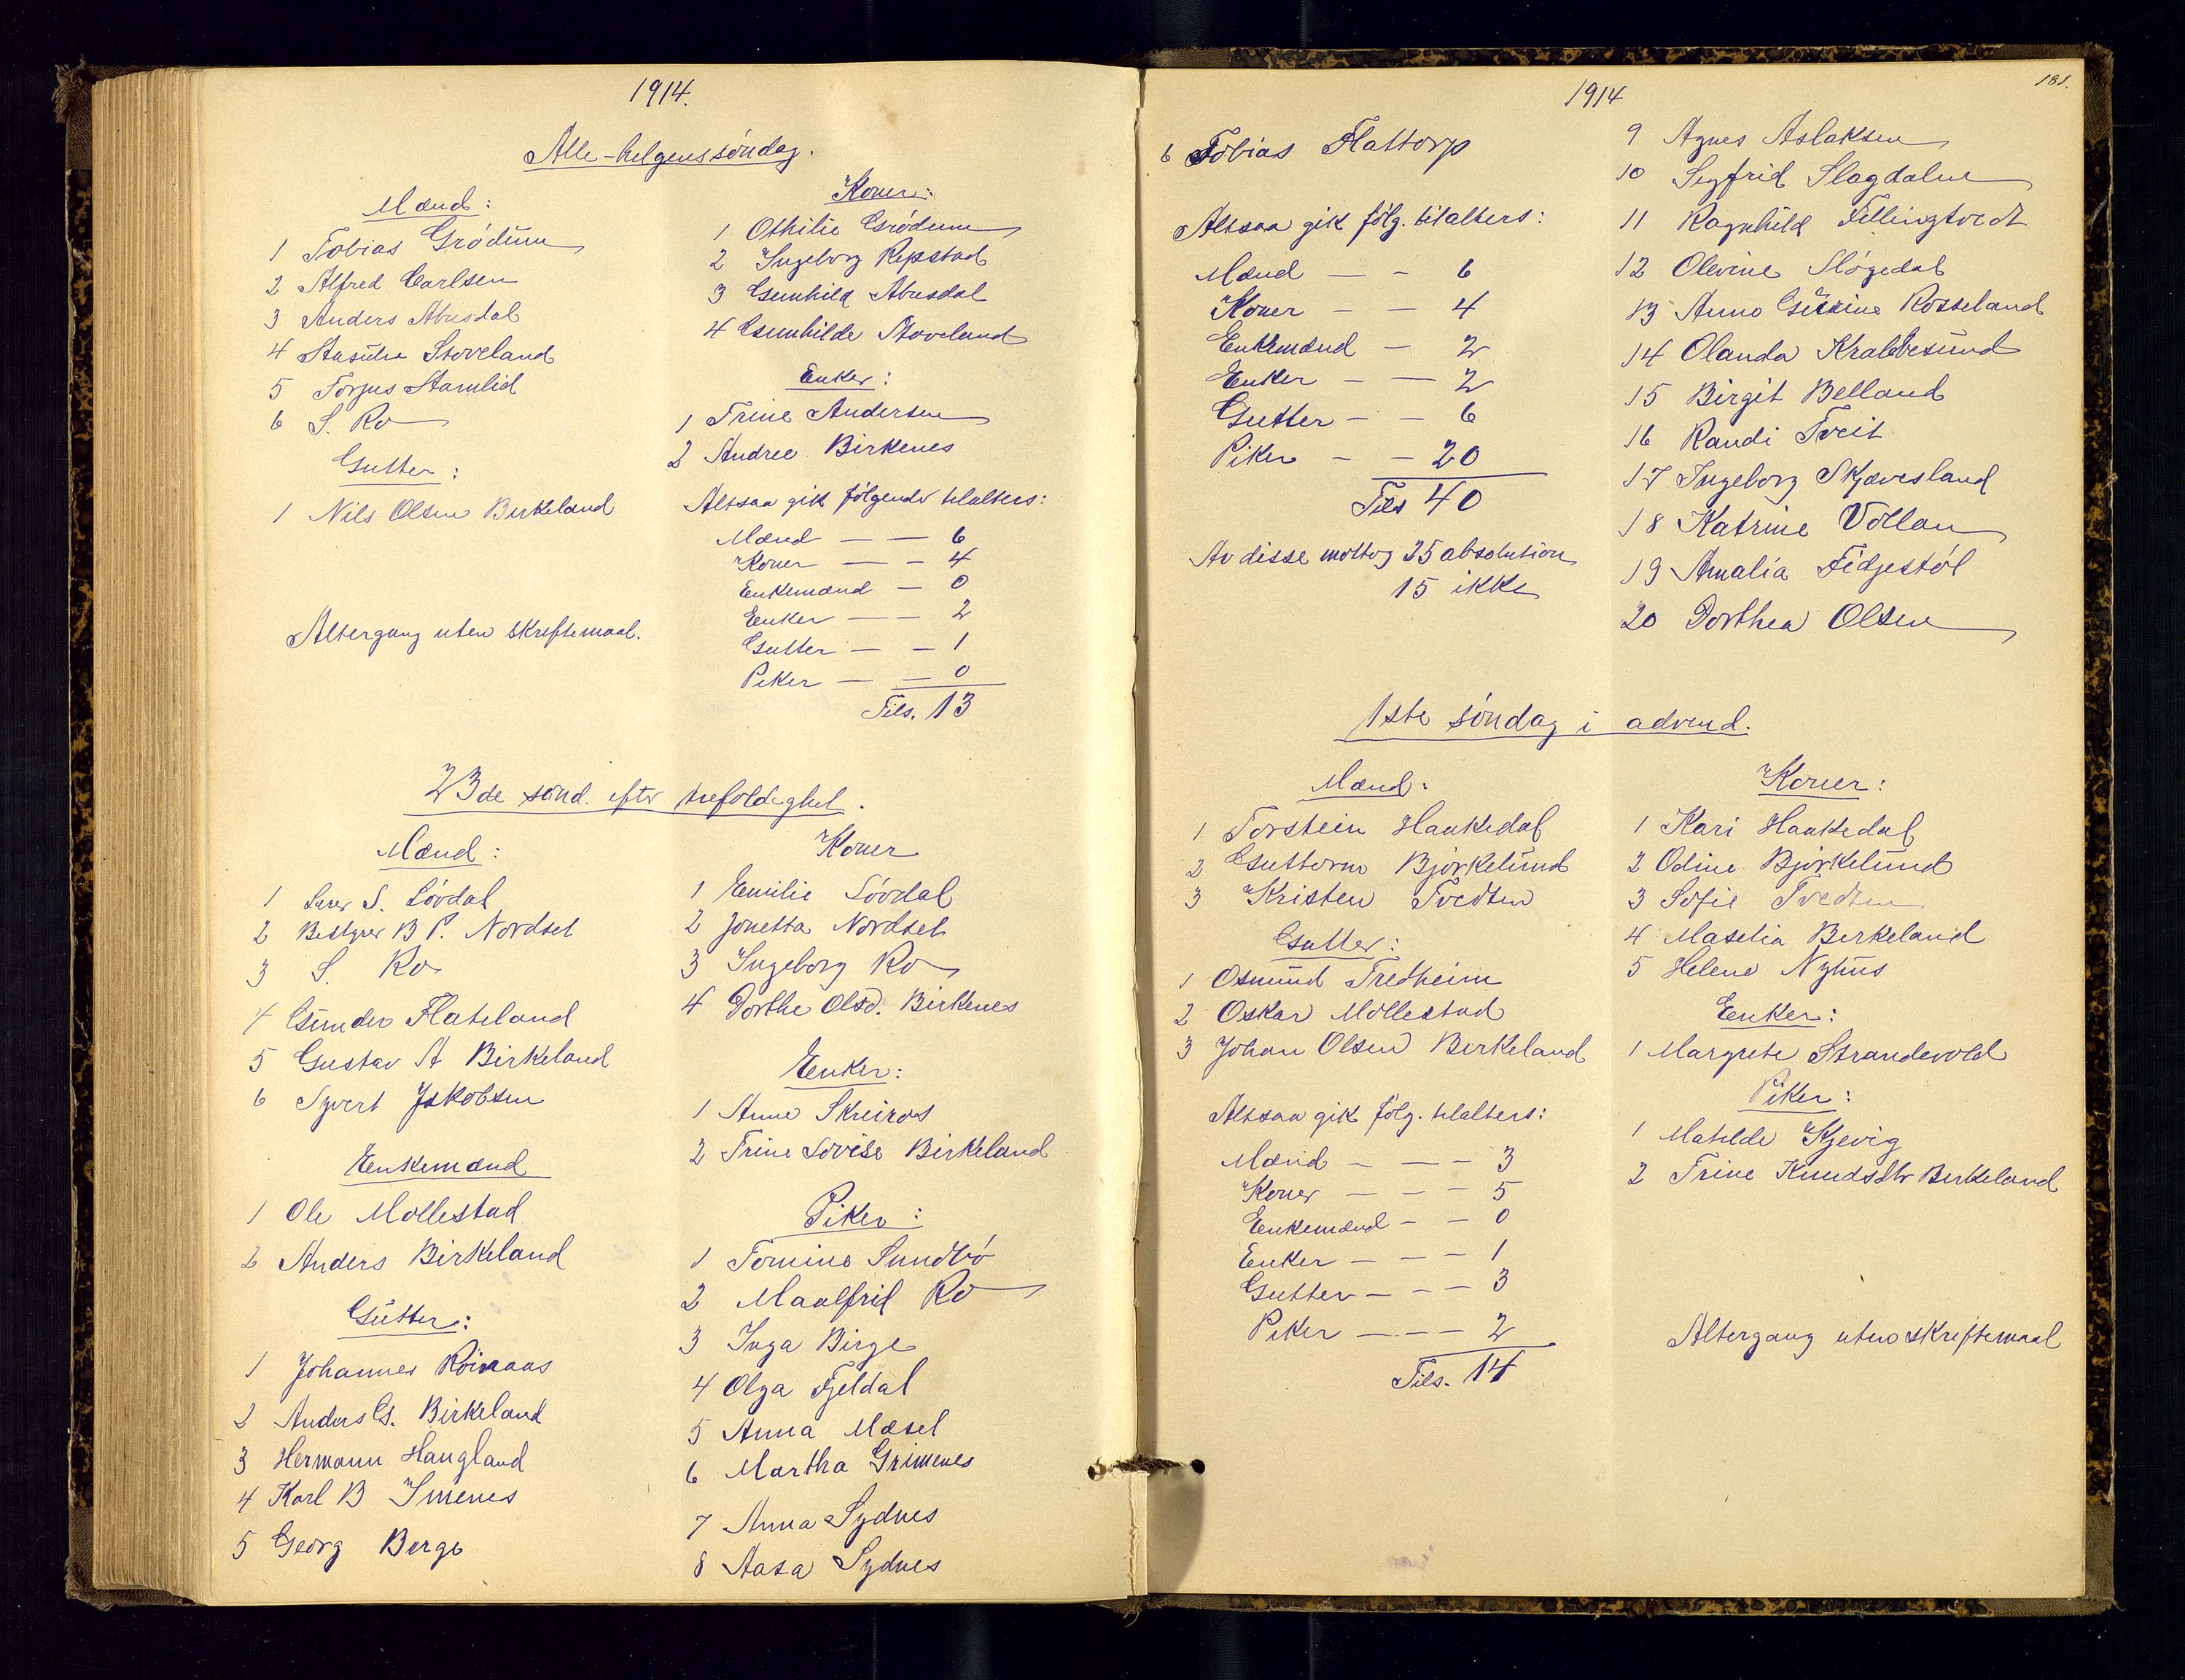 1914.
Alle-helgenssöndag.
Mænd:
1 Tobias Grödum
2 Alfred Carlsen
3 Anders Abusdal
4 Stoveland
5 Torjus Stamlid
6 S. Ro
Gutter:
1 Nils Olsen Birkeland
Altergang uten skriftemaal.
Koner:
1 Othilie Grödum
2 Ingeborg Repstad
3 Gunhild Abusdal
4 Gunhilde Stoveland
Enker:
1 Trine Andersen
2 Andree Birkenes
Altsaa gik følgende tilalters:
Mænd — — 6
Koner — — 4
Enkemænd — 0
Enker — — 2
Gutter — — 1
Piker — — 0
Tils. 13
23de sönd. efter trefoldighet.
Mænd:
1 Lærer S. Lövdal
2 Bestyrer B P. Nordset
3 S. Ro
4 Gunder Flateland
5 Gustav A Birkeland
6 Syvert Jakobsen
Enkemænd
1 Ole Mollestad
2 Anders Birkeland
Gutter:
1 Johannes Roinaas
2 Anders G. Birkeland
3 Hermann Haugland
4 Karl B Imenes
5 Georg Berge
Koner
1 Emilie Lövdal
2 Jonetta Nordset
3 Ingeborg Ro
4 Dorthe Olsd. Birkenes
Enker:
1 Anne Skreiros
2 Trine Lovise Birkeland
Piker:
1 Tomine Sundbö
2 Maalfrid Ro
3 Inga Birge
4 Olga Fjeldal
5 Anna Mæsel
6 Martha Grimenes
7 Anna Sydnes
8 Aasa Sydnes
181.
1914
6 Tobias Flattorp
Altsaa gik fölg. tilalters:
Mænd — - 6
Koner — — 4
Enkemænd — 2
Enker — — 2
Gutter — — 6
Piker — — 20
Tils 40
Av disse mottog 25 absolution
15 ikke
9 Agnes Aslaksen
10 Segfrid Slagdalen
11 Ragnhild Fillingtvedt
12 Olevine Slögedal
13 Anna Gurine Rosseland
14 Olanda Krabbesund
15 Birgit Belland
16 Randi Tveit
17 Ingeborg Skjævesland
18 Katrine Vollan
19 Amalia Fidjestöl
20 Dorthea Olsen
1ste söndag i advend.
Mænd:
1 Torstein Haakedal
2 Guttorm Björkelund
3 Kristen Tvedten
Gutter:
1 Osmund Tredheim
2 Oskar Mollestad
3 Johan Olsen Birkeland
Altsaa gik fölg. tilalters:
Mænd — — — 3
Koner — — — 5
Enkemænd — — 0
Enker — — — 1
Gutter — — — 3
Piker — — — 2
Tils. 14
Koner:
1 Kari Haakedal
2 Odine Björkelund
3 Sofie Tvedten
4 Maselia Birkeland
5 Helene Nyhus
Enker:
1 Margrete Strandevold
Piker:
1 Matilde Kjevig
2 Trine Knudsdtr Birkeland
Altergang uten skriftemaal